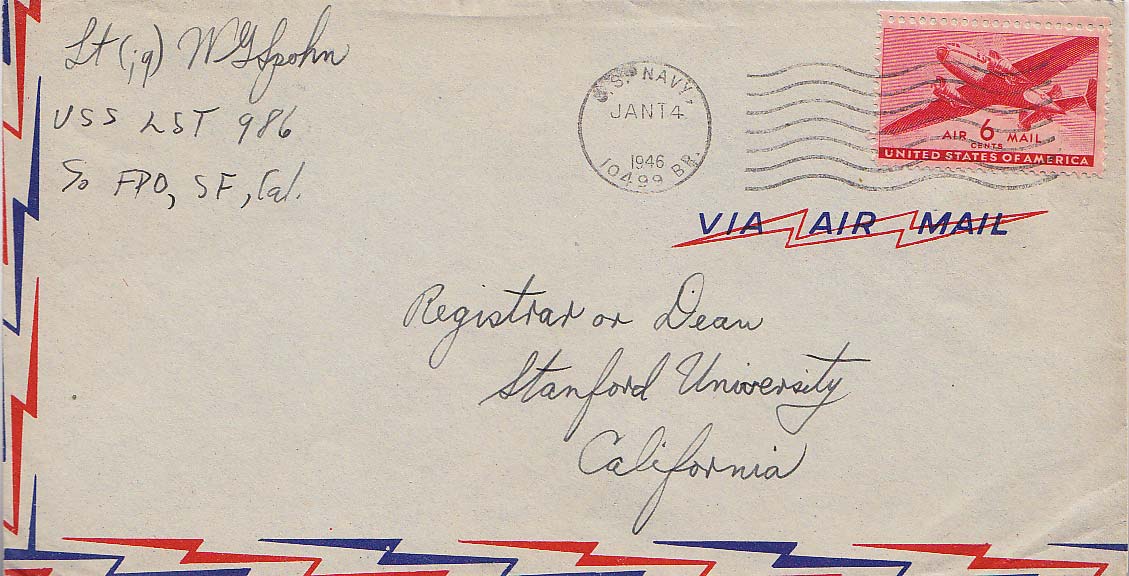 Lt (jg) W G Spohn
USS LST 986
℅ FPO, SF, Cal.
U.S. NAVY
JAN 14
1946
10499 BR.
AIR 6 MAIL
CENTS
UNITED STATES OF AMERICA
VIA AIR MAIL
Registrar or Dean
Stanford University
California